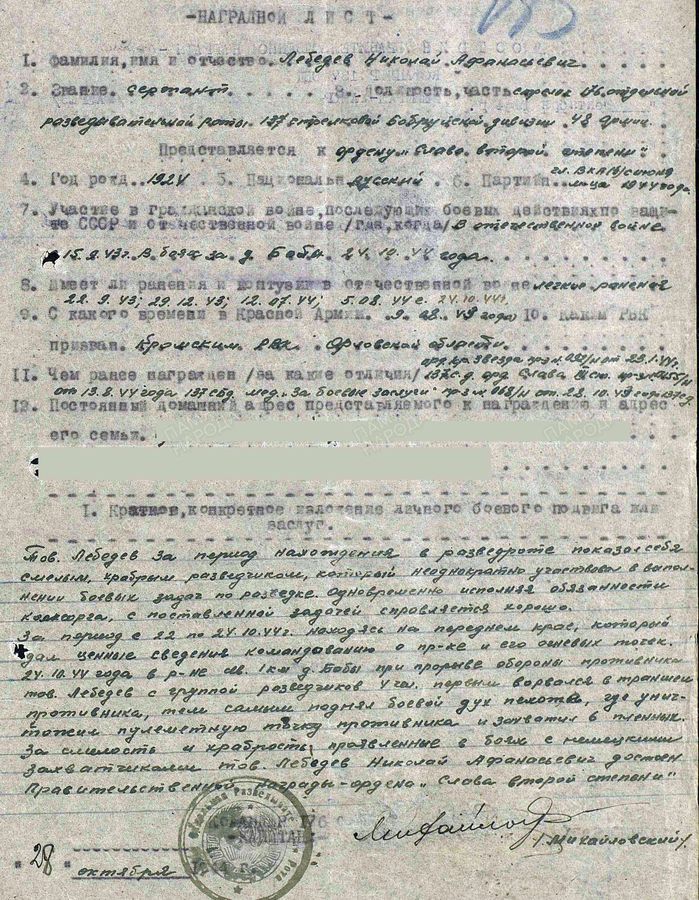 -НАГРАДНОЙ ЛИСТ-
1. Фамилия, имя и отчество. Лебедев Николай Афанасьевич
2. Звание. Сержант 3. Должность, часть стрелок 176 отдельной
разведывательной роты 137 стрелковой Бобруйской дивизии 48 армии.
Представляется к ордену „Слава второй степени".
4. Год рожд.. 1924 5. Национальн русский 6. Партийн..
7. Участие в гражданской войне, последующих боевых действиях по защи-
те СССР и отечественной войне /где, когда/ В отечественной войне
15.9.43г. В боях за д. Бабы 24.10.44 года.
8. Имеет ли ранения и контузии в отечественной войне легкие ранения
22.9.43; 29.12.43; 12.07.44; 5.08.44г. 24.10.44г.
9. С какого времени в Красной Армии. 9.08.43 года 10. Каким РВК
призван. Кромским РВК Орловской области.
орд. кр. Звезда пр-з № от 23.1.44г.
11. Чем ранее награжден /за какие отличия/ 137с.д. орд. Слава
от 13.8.44 года 137 сбд. мед. „За боевые заслуги" пр-з № 068/н от 23.10.43 года 137сд
12. Постоянный домашний адрес представляемого к награждению и адрес
его семьи.
I. Краткое, конкретное изложение личного боевого подвига или
заслуг.
Тов. Лебедев за период нахождения в разведроте показал себя
смелым, храбрым разведчиком, который неоднократно участвовал в выпол-
нении боевых задач по разведке. Одновременно исполняя обязанности
комсорга, с поставленной задачей справляется хорошо.
За период с 22 по 24.10.44г. находясь на переднем крае, который
дал ценные сведения командованию о пр-ке и его огневых точек.
24.10.44 года в р-не св. 1км д. Бабы при прорыве обороны противника
тов. Лебедев с группой разведчиков 4 чел. первым ворвался в траншеи
противника, тем самым поднял боевой дух пехоты, где унич-
тожил пулеметную точку противника и захватил 6 пленных.
За смелость и храбрость проявленные в боях с немецкими
захватчиками тов. Лебедев Николай Афанасьевич достоен
Правительственной награды-ордена „Слава второй степени"
КОМАНДИР 176
-КАПИТАН-
/Михайловский/
"28" октября